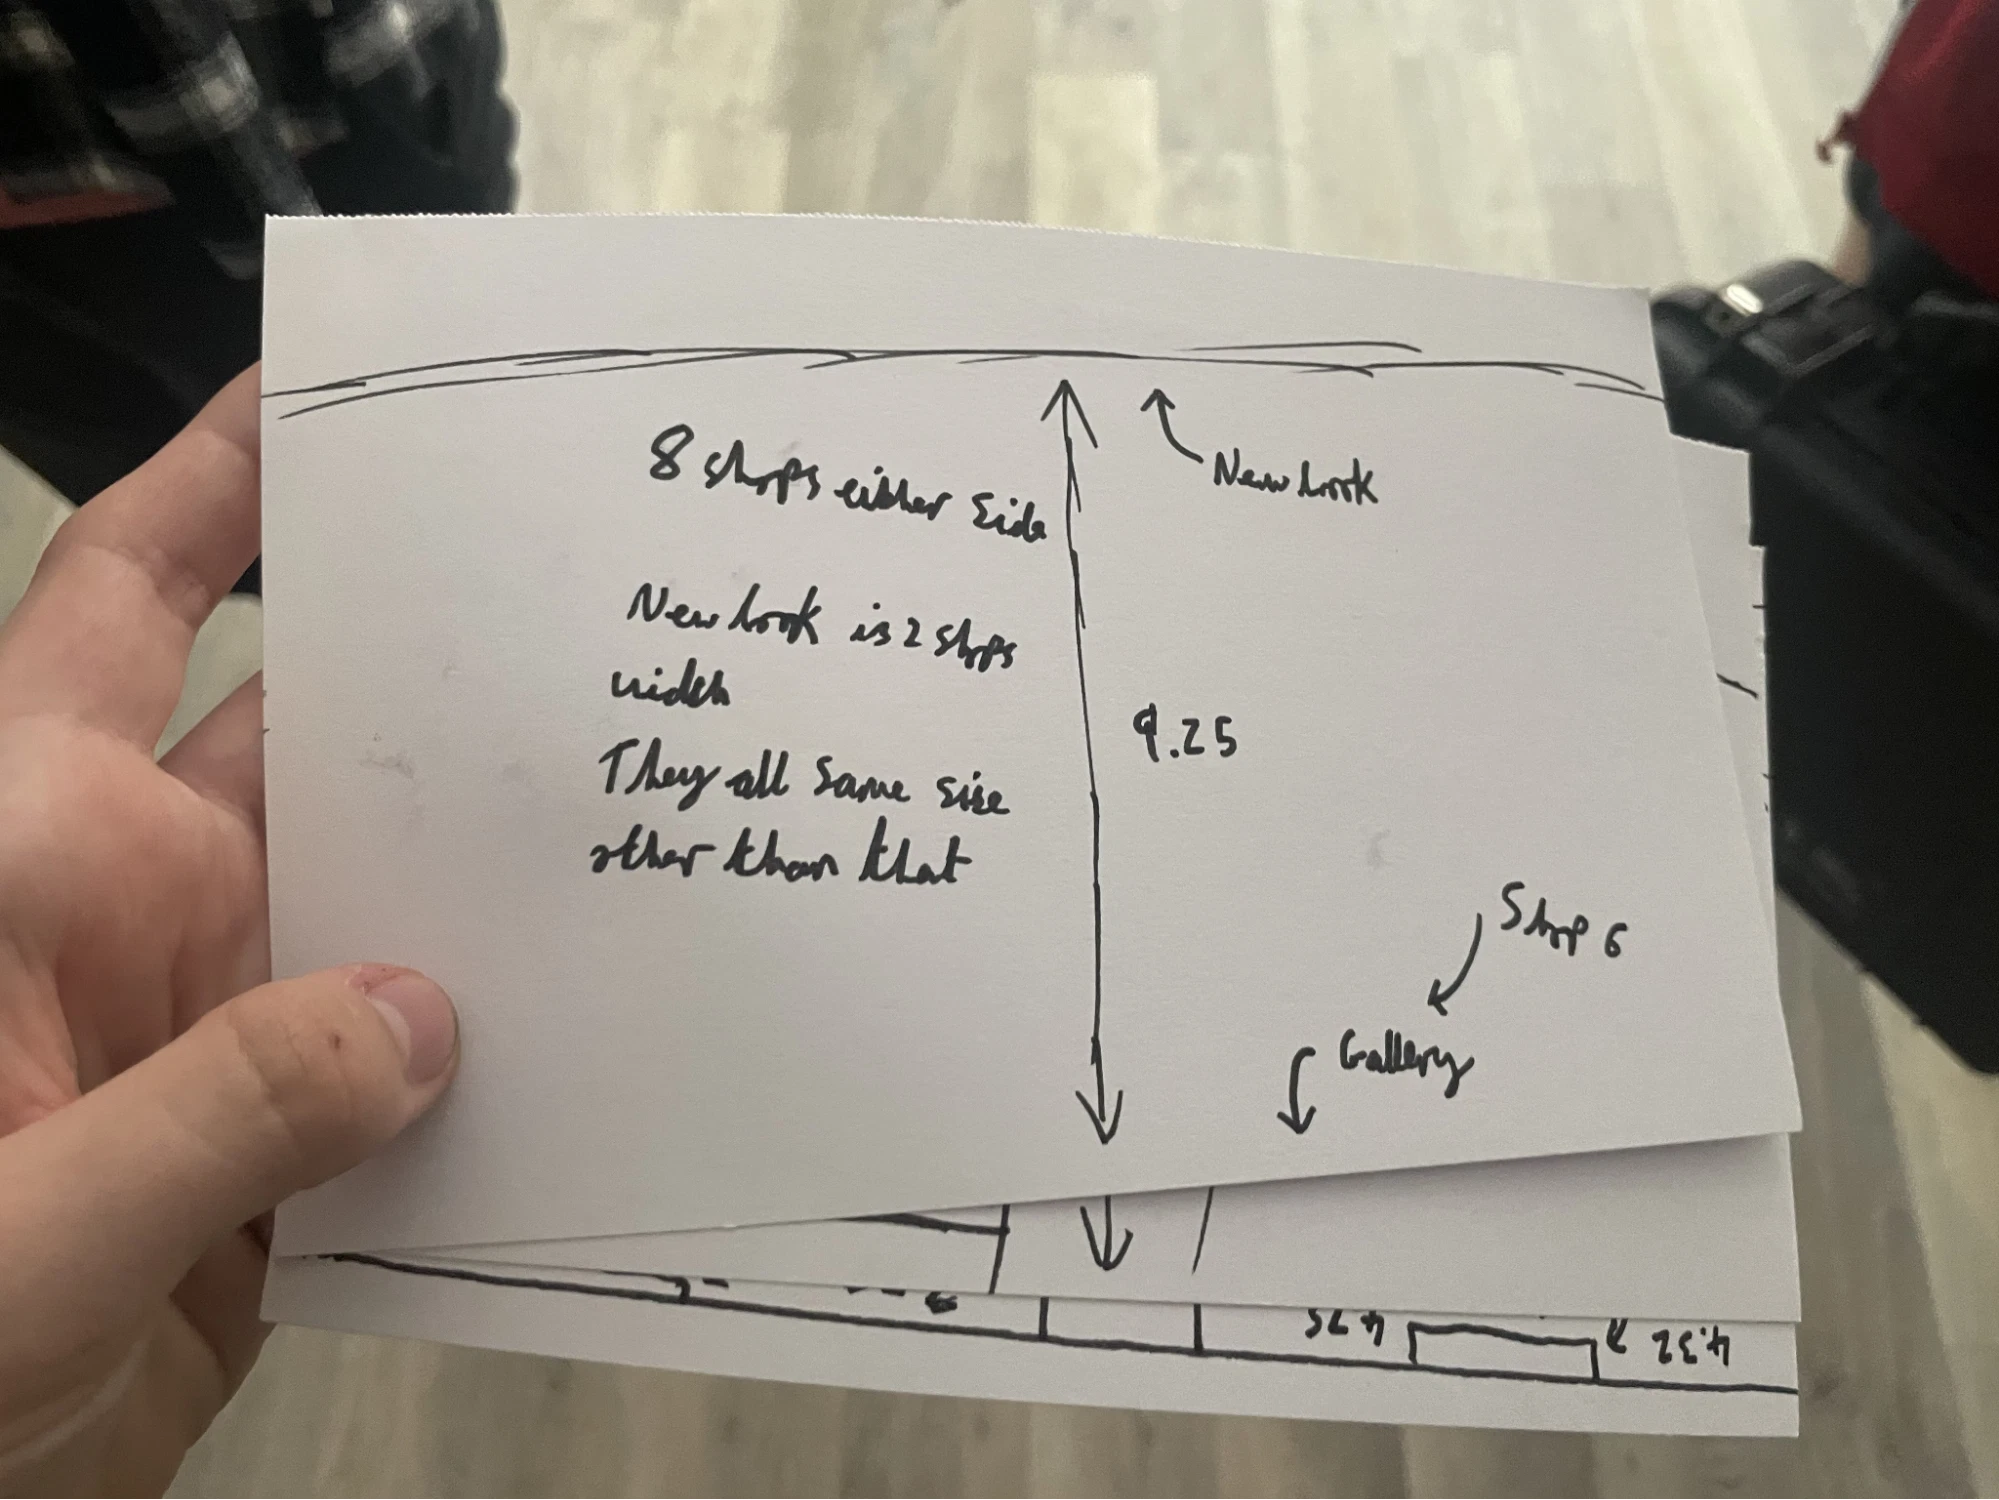 8 shops either side
New Look
New Look is 2 shops
width
They all same size
other than that
9.25
Shop 6
Gallery
4.75
4.32